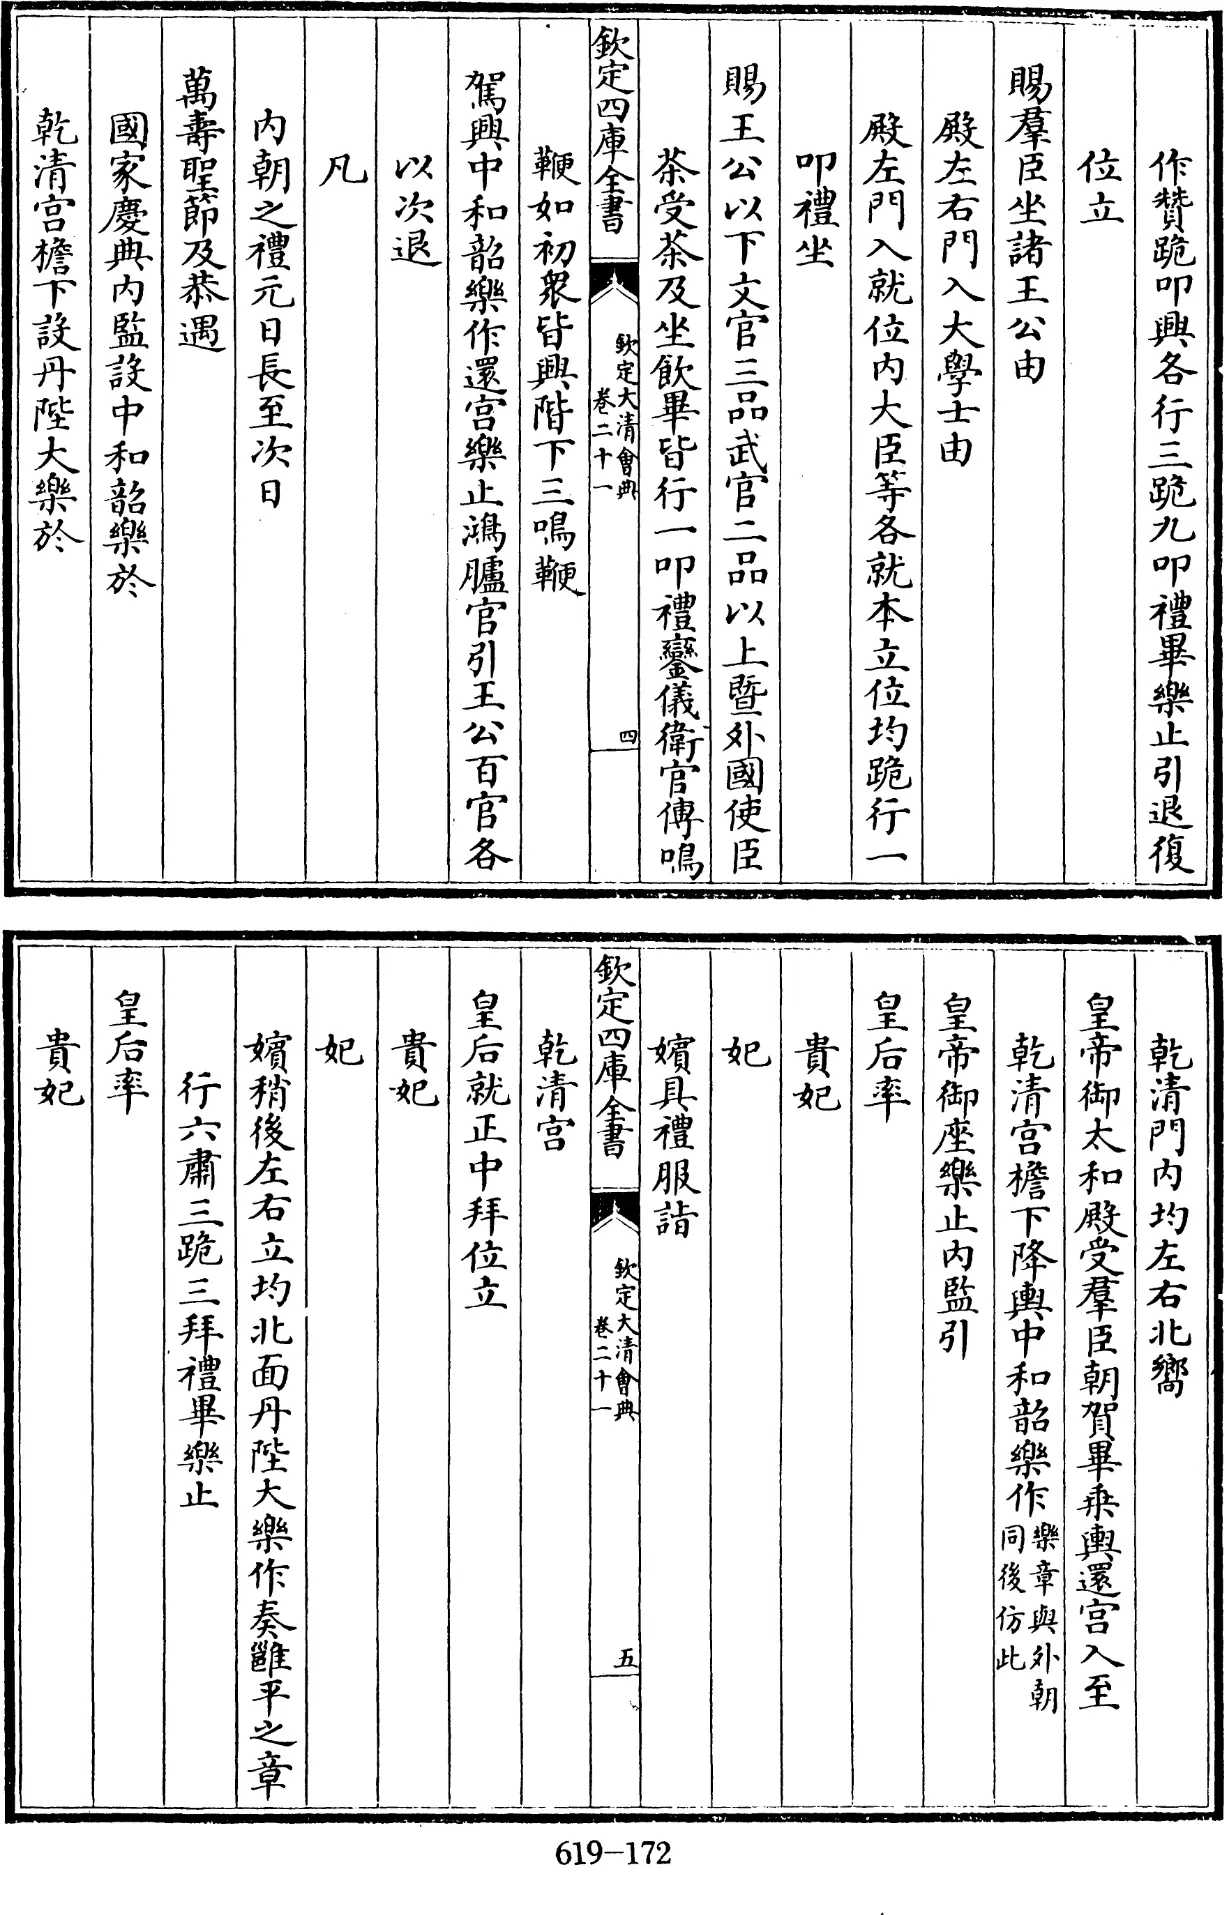 作贊跪叩興各行三跪九叩禮畢樂止引退復
位立
賜羣臣坐諸王公由
殿左右門入大學士由
殿左門入就位内大臣等各就本立位均跪行一
叩禮坐
賜王公以下文官三品武官二品以上暨外國使臣
茶受茶及坐飲畢皆行一叩禮鑾儀衛官傳鳴
欽定四庫全書
欽定大清會典
卷二十一
四
鞭如初衆皆興階下三鳴鞭
駕興中和韶樂作還宫樂止鴻臚官引王公百官各
以次退
凡
内朝之禮元日長至次日
萬壽聖節及恭遇
國家慶典内監設中和韶樂於
乾清宫檐下設丹陛大樂於
乾清門内均左右北嚮
皇帝御太和殿受羣臣朝賀畢乘輿還宫入至
乾清宫檐下降輿中和韶樂作樂章與外朝
同後仿此
皇帝御座樂止内監引
皇后率
貴妃
妃
嬪具禮服詣
欽定四庫全書
欽定大清會典
卷二十一
五
乾清宫
皇后就正中拜位立
貴妃
妃
嬪稍後左右立均北面丹陛大樂作奏雝平之章
行六肅三跪三拜禮畢樂止
皇后率
貴妃
619-172